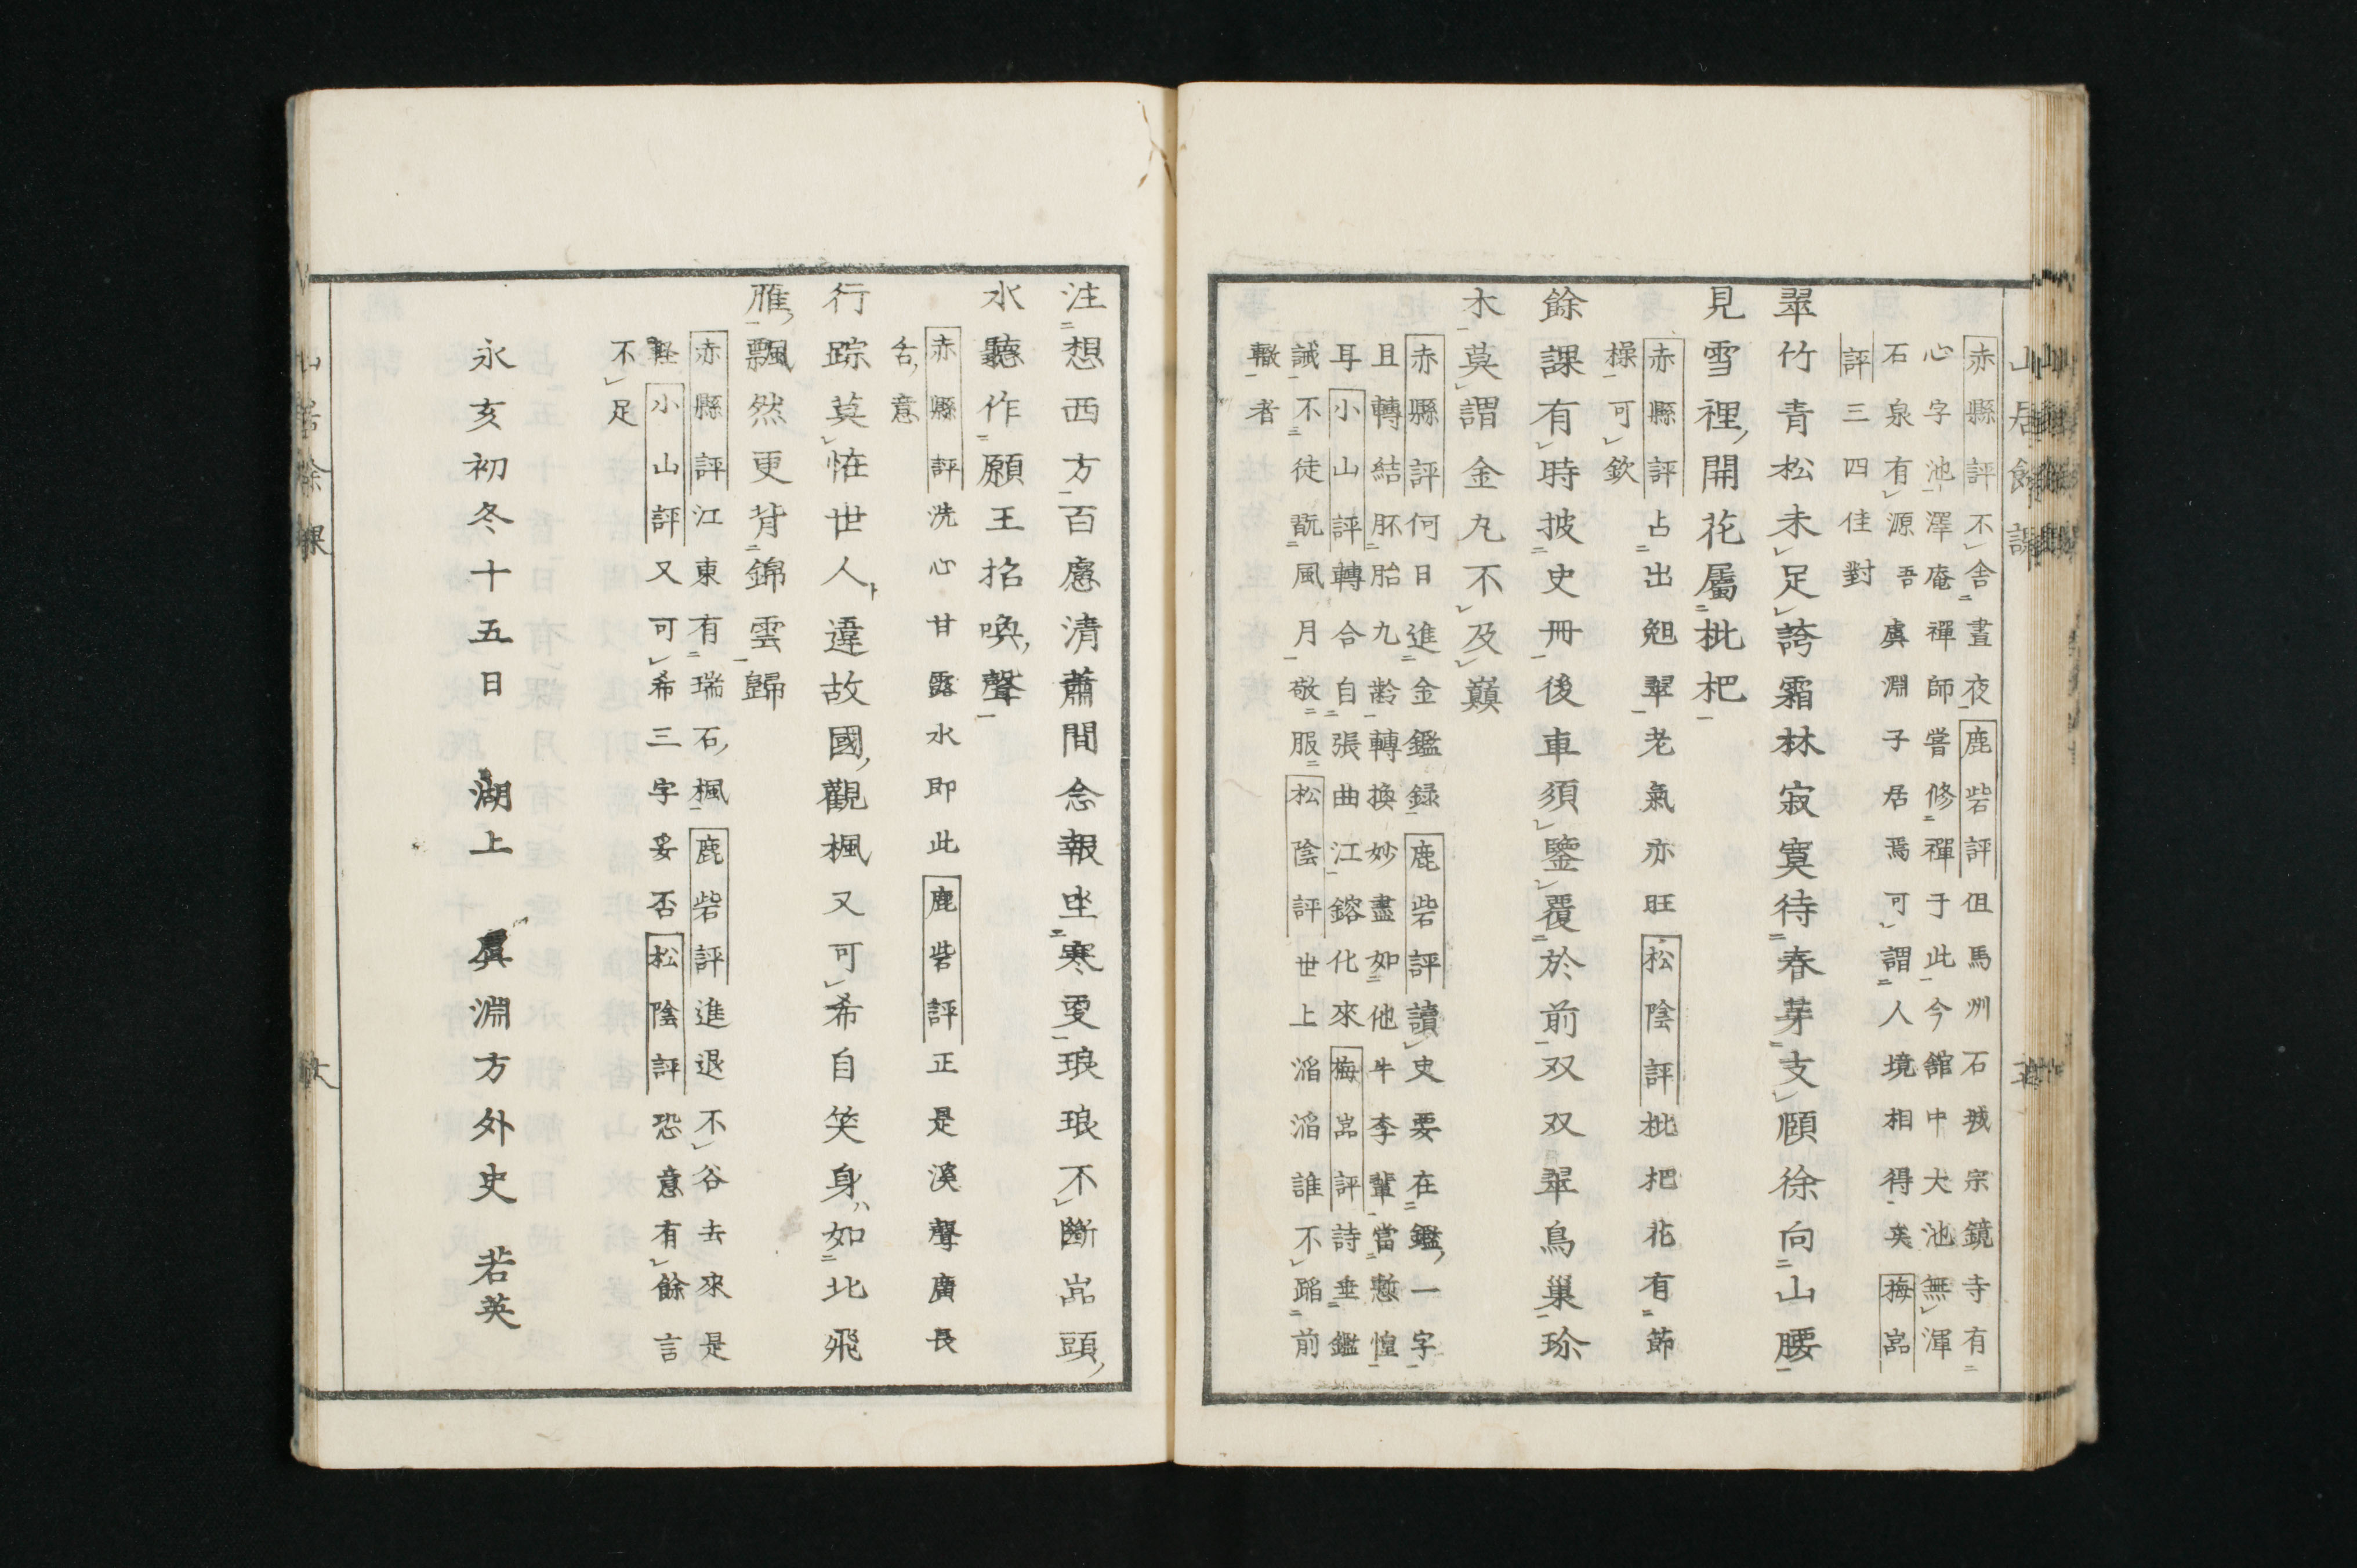 山居餘課
赤縣評不舎晝夜鹿砦評但馬州石㦯宗鏡寺有
心字池澤庵禪師嘗修禪于此今舘中大池無渾
石泉有源吾虞淵子居焉可謂人境相得矣梅嵓
評三四佳對
翠竹青松未足誇霜林寂寞待春芽支頤徐向山腰
見雪裡開花屬枇杷
赤縣評占出兜翠老氣亦旺松陰評枇杷花有節
操可欽
餘課有時披史冊後車須鑒覆於前双双翠鳥巢珎
木莫謂金丸不及巔
赤縣評何日進金鑑録鹿砦評讀史要在鑑一字
且轉結胚胎九齡轉換妙盡如他牛李輩當慙惶
耳小山評轉合自張曲江鎔化來梅嵓評詩垂鑑
誡不徒翫風月敬服松陰評世上滔滔誰不蹈前
轍者
注想西方百慮清蕭間念報坐寒更琅琅不斷嵓頭
水聽作願王招喚聲
赤縣評洗心甘露水即此鹿砦評正是溪聲廣長
舌意
行踪莫恠世人違故國觀楓又可希自笑身如北飛
雁飄然更背錦雲歸
赤縣評江東有瑞石楓鹿砦評進退不谷去來是
輕小山評又可希三字妥否松陰評恐意有餘言
不足
永亥初冬十五日　湖上　虞淵方外史　若英
山居餘課